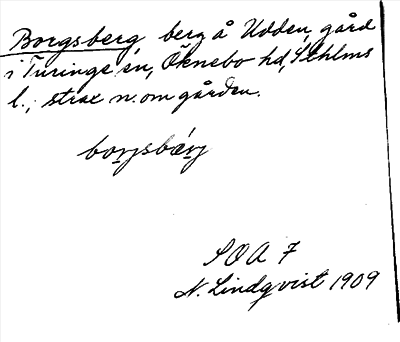 Borgsberg, berg å Udden, gård
i Turinge sn, Öknebo hd, Sthlms
l., strax n. om gården.
SOA 7
N. Lindqvist 1909